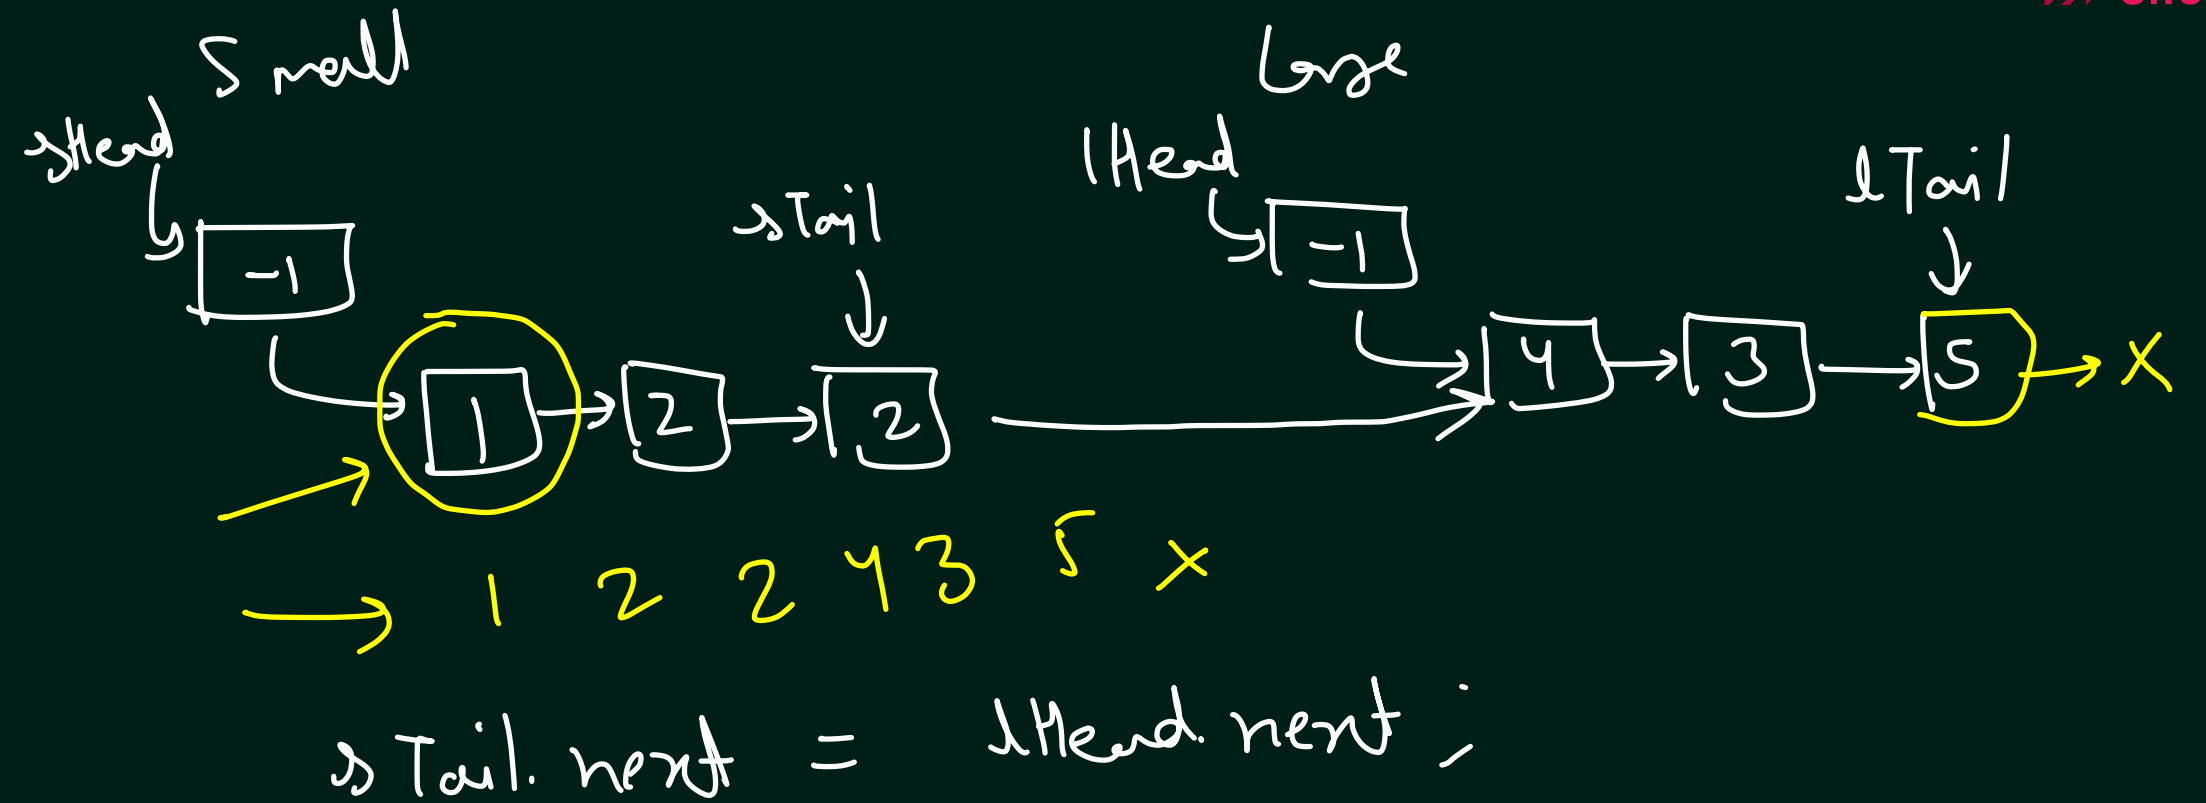 Small
Large
sHead
lHead
lTail
sTail
-1
-1
1 2 2
4 3 5 x
1 2 2 4 3 5 x
sTail.next = lHead.next;